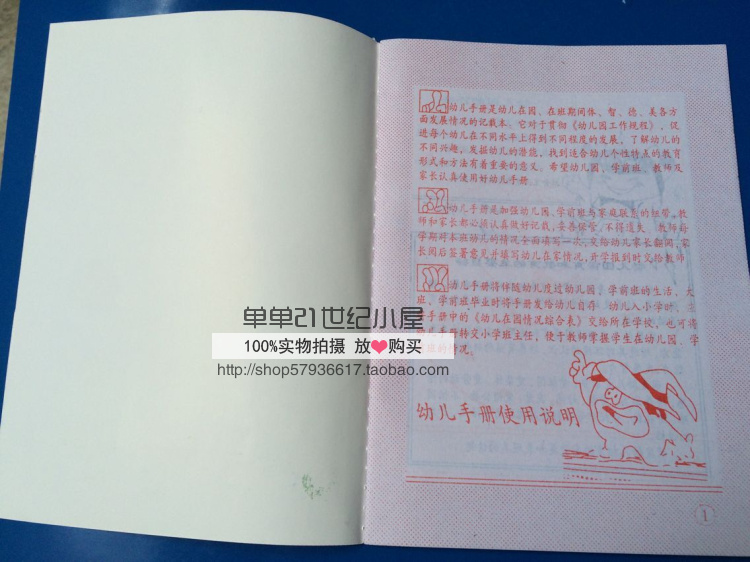 幼儿手册是幼儿在园、在班期间体、智、德、美各方
面发展情况的记载本。它对于贯彻《幼儿园工作规程》,促
进每个幼儿在不同水平上得到不同程度的发展,了解幼儿的
不同兴趣,发掘幼儿的潜能,找到适合幼儿个性特点的教育
形式和方法有着重要的意义。希望幼儿园、学前班、教师及
家长认真使用好幼儿手册
幼儿手册是加强幼儿园、学前班与家庭联系的纽带,教
师和家长都必须认真做好记载,妥善保管,不得遗失 教师每
学期对本班幼儿的情况全面填写一次,交给幼儿家长翻阅,家
长阅后签署意见并填写幼儿在家情况,开学报到时交给教师
幼儿手册将伴随幼儿度过幼儿园、学前班的生活,大
班、学前班毕业时将手册发给幼儿自存 幼儿入小学时,
手册中的《幼儿在园情况综合表》交给所在学校,也可将
幼儿手册转交小学班主任,便于教师掌握学生在幼儿园、学
班的情况。
幼儿手册使用说明
1
单单21世纪小屋
100%实物拍摄 放❤购买
http://shop57936617.taobao.com